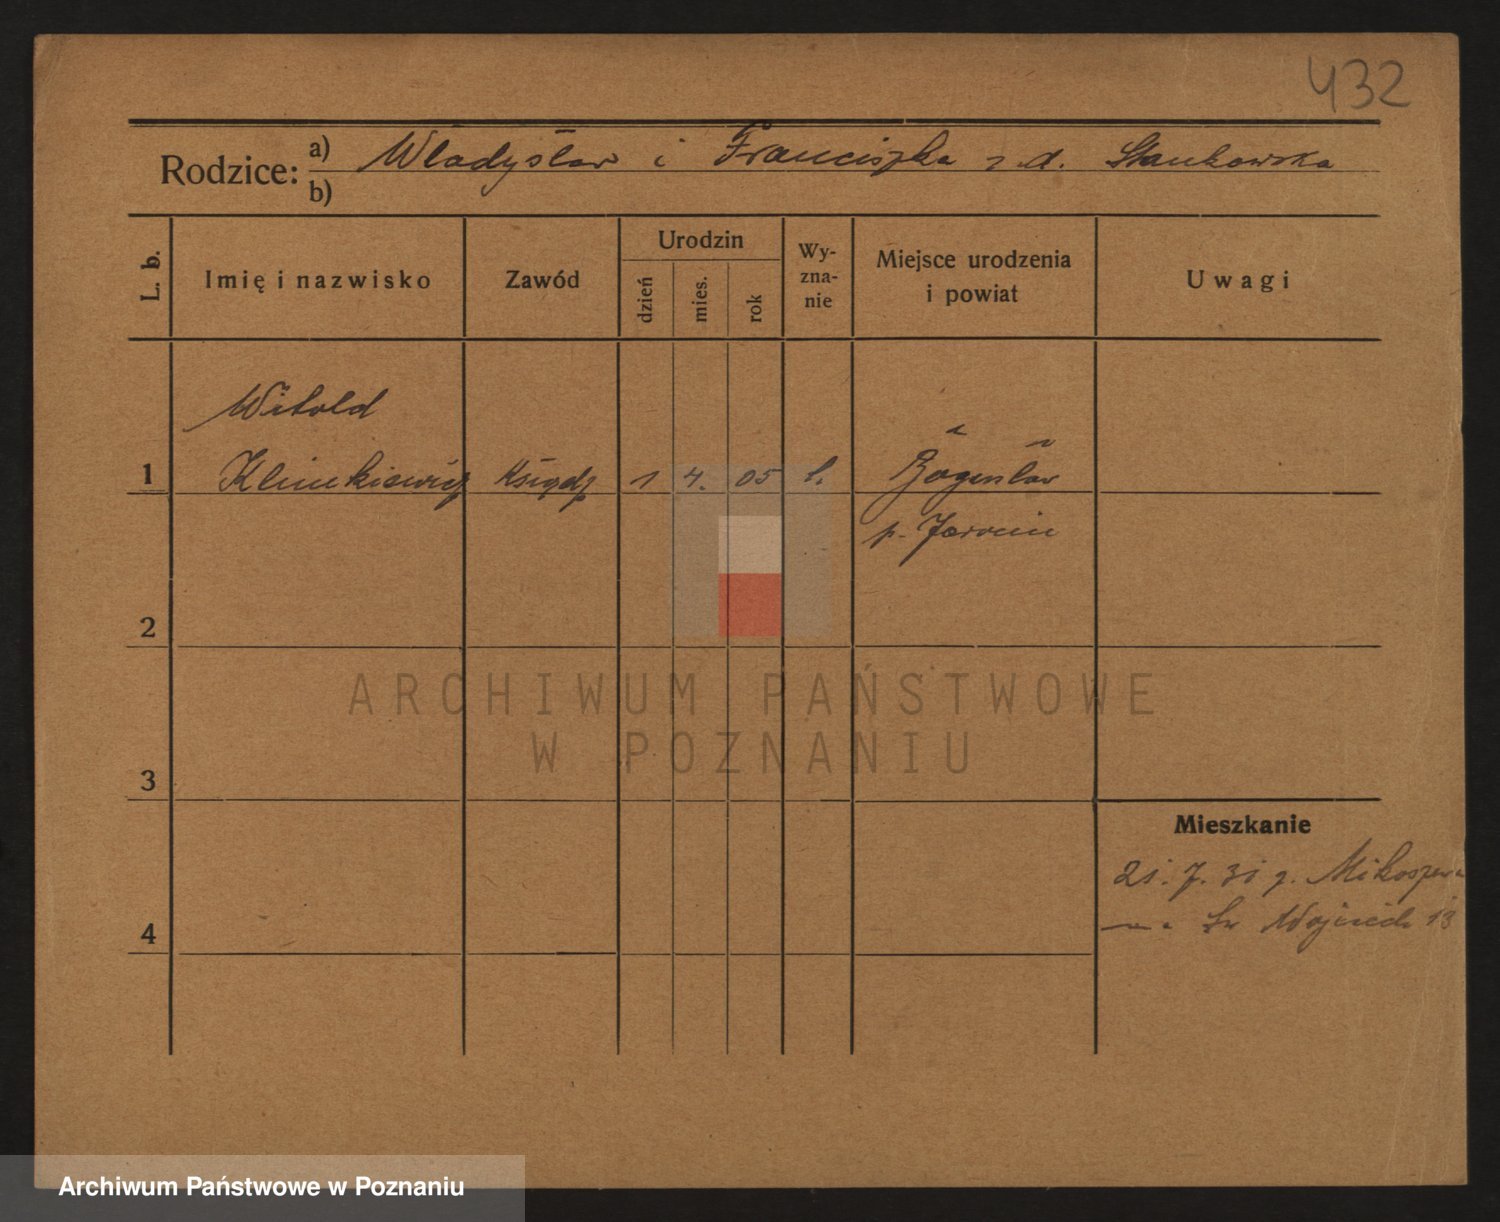 432
Rodzice: a) Władysław i Franciszka z d. Stankowska
b)
L. b.
Imię i nazwisko
Zawód
Urodzin
dzień
mies.
rok
Wy-
zna-
nie
Miejsce urodzenia
i powiat
Uwagi
Witold
1 Klimkiewicz Ksiądz 1 4. 05
p. Jarocin
2
3
4
Mieszkanie
21. 7. 31 z
Św Wojciech 13
ARCHIWUM PAŃSTWOWE
W POZNANIU
Archiwum Państwowe w Poznaniu